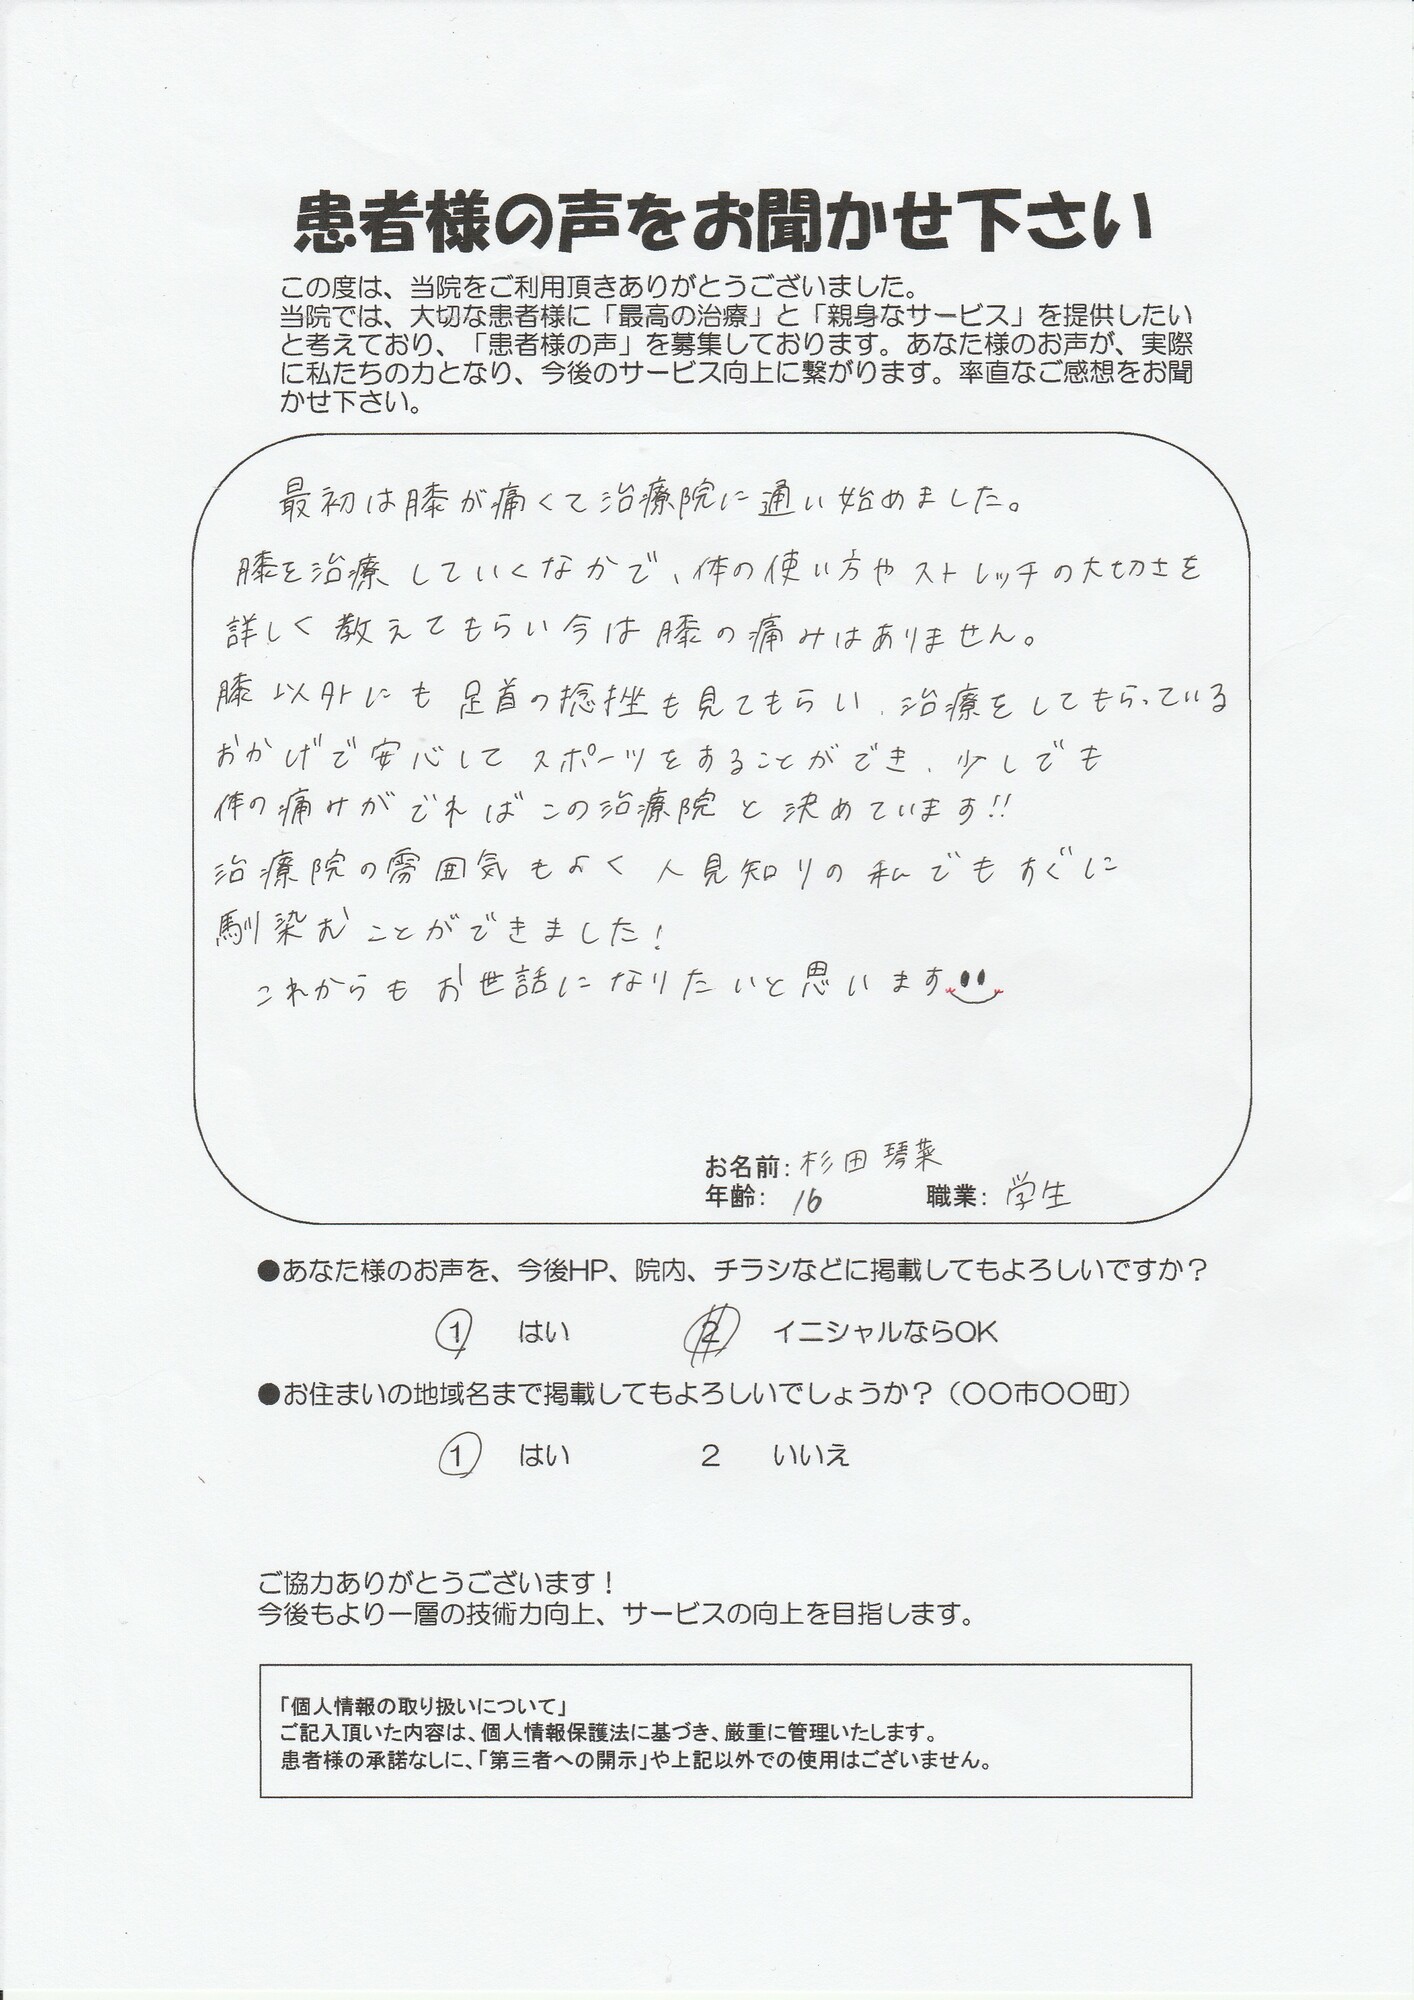 患者様の声をお聞かせ下さい
この度は、当院をご利用頂きありがとうございました。
当院では、大切な患者様に「最高の治療」と「親身なサービス」を提供したい
と考えており、「患者様の声」を募集しております。あなた様のお声が、実際
に私たちの力となり、今後のサービス向上に繋がります。率直なご感想をお聞
かせ下さい。
最初は膝が痛くて治療院に通い始めました。
膝を治療していくなかで、体の使い方やストレッチの大切さを
詳しく教えてもらい今は膝の痛みはありません。
膝以外にも足首の捻挫も見てもらい、治療をしてもらっている
おかげで安心してスポーツをすることができ、少しでも
体の痛みがでればこの治療院と決めています!!
治療院の雰囲気もよく人見知りの私でもすぐに
馴染むことができました!
これからもお世話になりたいと思います
お名前: 杉田 琴菜
年齢: 16 職業: 学生
●あなた様のお声を、今後HP、院内、チラシなどに掲載してもよろしいですか？
1 はい 2 イニシャルならOK
●お住まいの地域名まで掲載してもよろしいでしょうか？（〇〇市〇〇町）
1 はい 2 いいえ
ご協力ありがとうございます！
今後もより一層の技術力向上、サービスの向上を目指します。
「個人情報の取り扱いについて」
ご記入頂いた内容は、個人情報保護法に基づき、厳重に管理いたします。
患者様の承諾なしに、「第三者への開示」や上記以外での使用はございません。